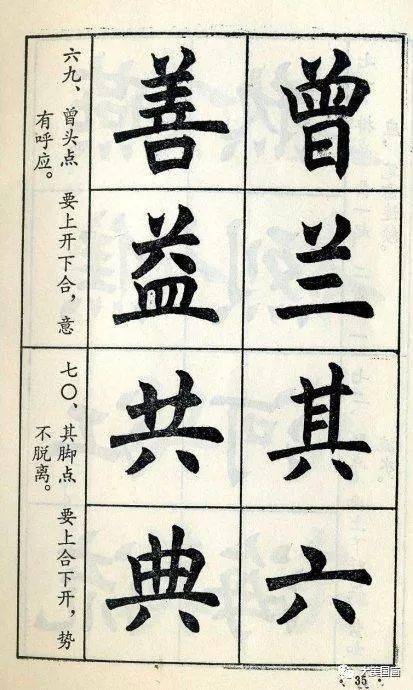 曾
兰
其
六
善
益
共
典
六九、曾头点 要上开下合，意
有呼应。
七〇、其脚点 要上合下开，势
不脱离。
· 35 ·